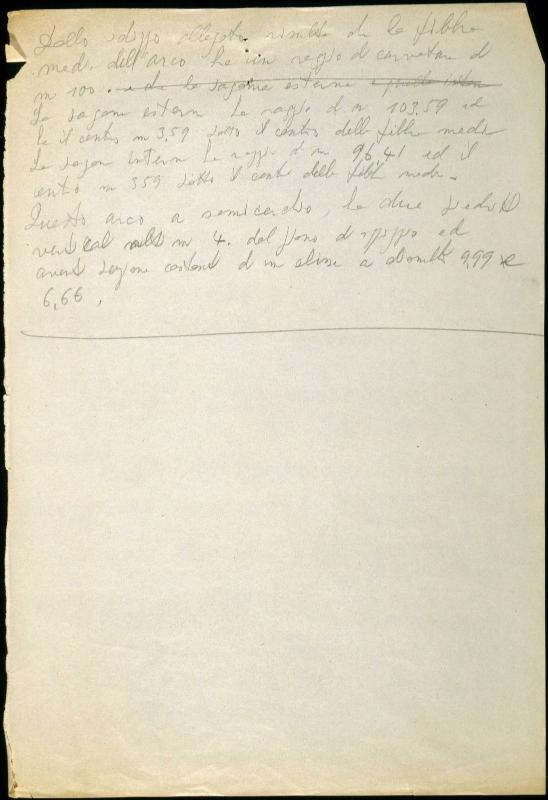 Dallo schizzo allegato risulta che la fibbra
media dell'arco ha un raggio di curvatura di
m 100. e che la sagoma esterna e quella intern
La sagoma estern ha raggio di m 103.59 ed
ha il centro m 3,59 sotto il centro della fibbra media
La sagom intern ha raggio di m 96,41 ed il
centro m 359 sotto il centro della fibbr media.
Questo arco a semicerchio, ha due piedritti
verticali alti m 4. dal piano d'appoggio ed
avent sezione costante d'un elisse a diametri 9,99 e
6,66,